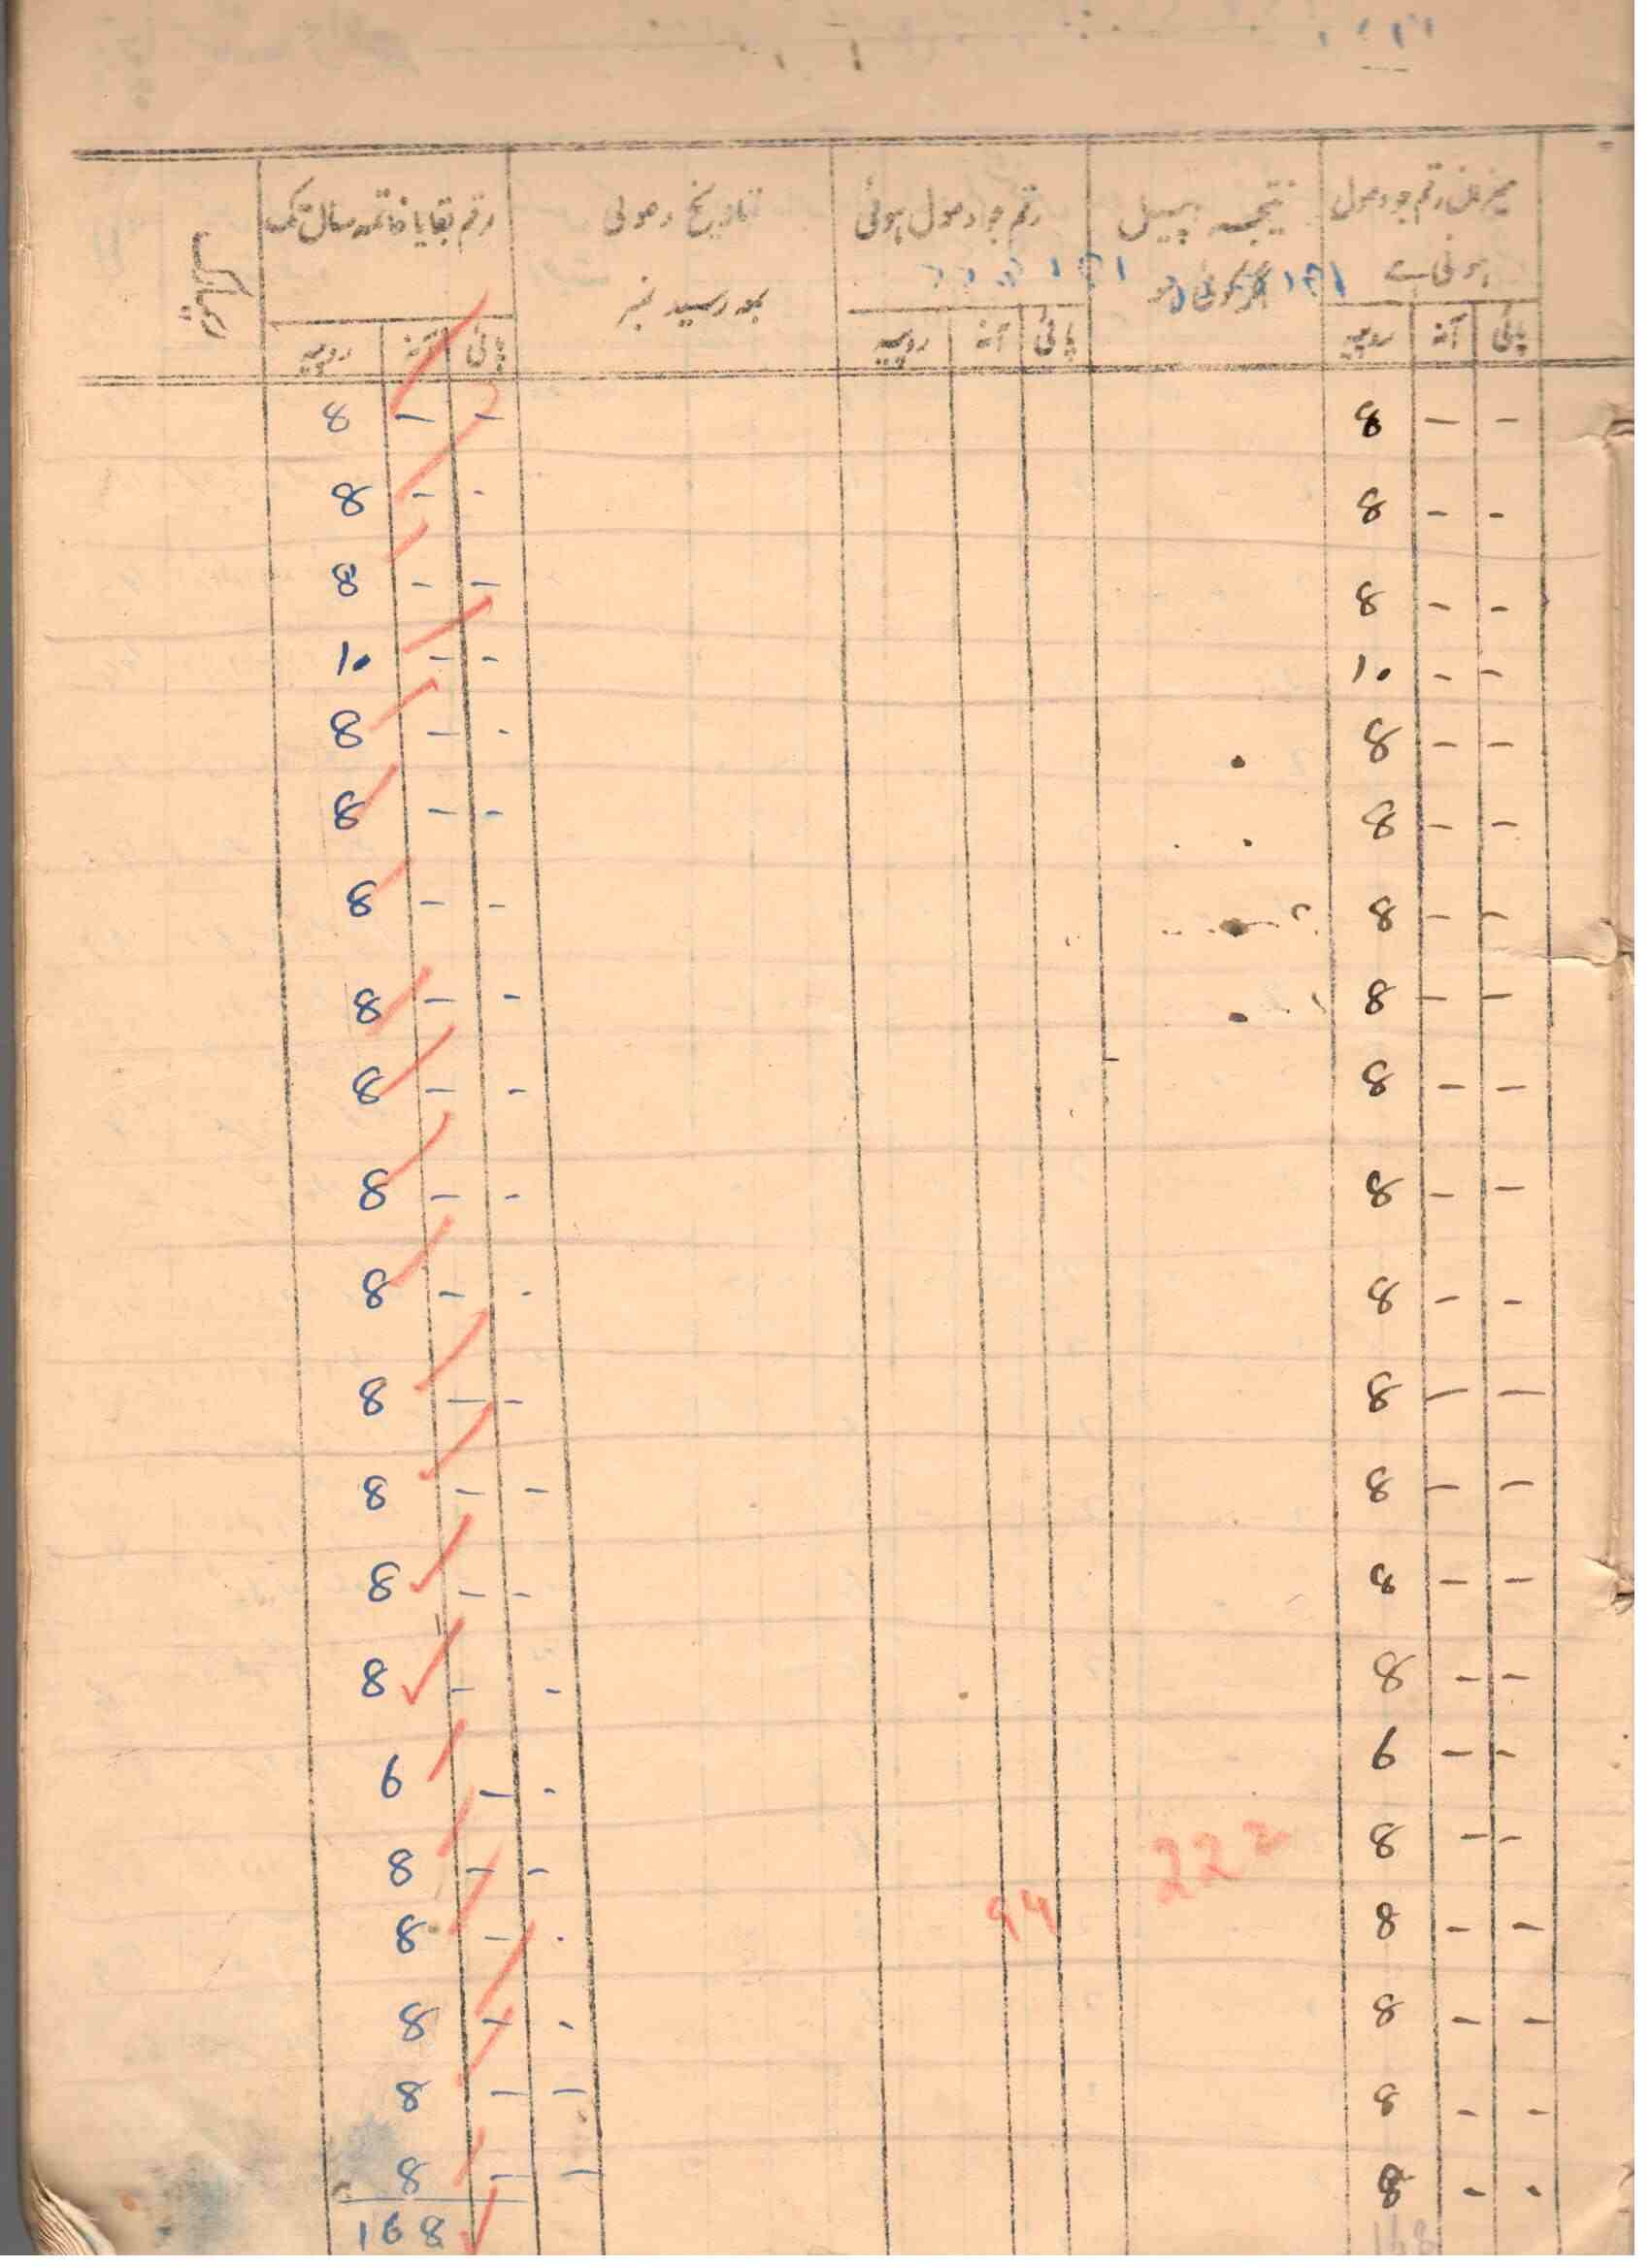 میزان رقم جو وصول	نتیجہ اپیل	رقم جو وصول ہوئی	تاریخ وصولی	رقم بقایا خاتمہ سال تک	ریمارکس
ہونی ہے	اگر کوئی ہو	بمعہ رسید نمبر
پائی	آنہ	روپیہ	پائی	آنہ	روپیہ	پائی	آنہ	روپیہ
- - 8	- - 8
- - 8	- - 8
- - 8	- - 8
- - 10	- - 10
- - 8	- - 8
- - 8	- - 8
- - 8	- - 8
- - 8	- - 8
- - 8	- - 8
- - 8	- - 8
- - 8	- - 8
- - 8	- - 8
- - 8	- - 8
- - 8	- - 8
- - 8	- - 8
- - 6	- - 6
- - 8	222	- - 8
- - 8	- - 8
- - 8	- - 8
- - 8	- - 8
- - 8	- - 8
168	168